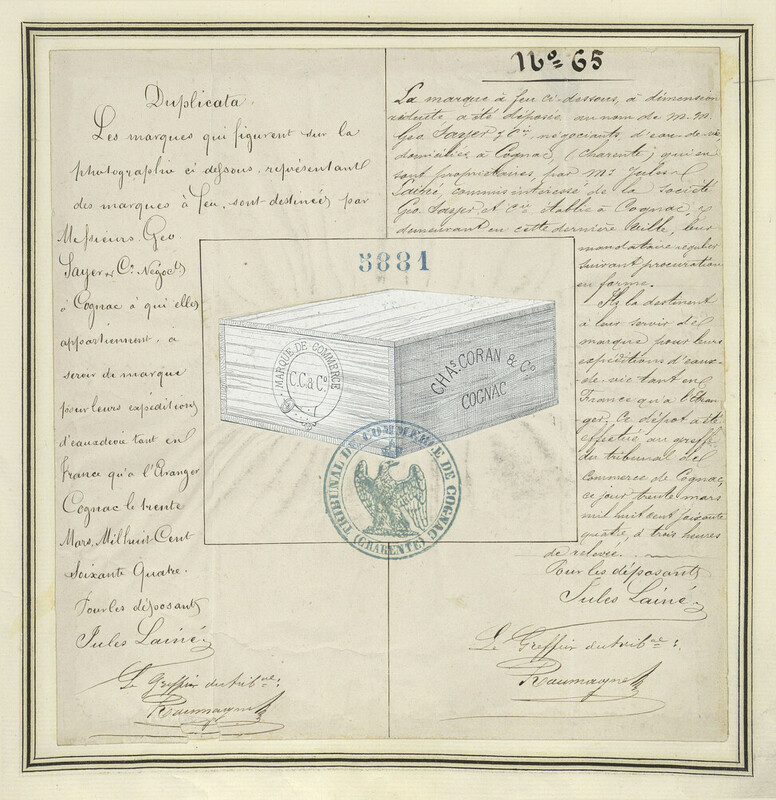 Duplicata.
Les marques qui figurent sur la
photographie ci dessous, représentant
des marques à feu, sont destinées par
Messieurs Geo
Sayer & Cie Négocts
à Cognac à qui elles
appartiennent, à
servir de marque
pour leurs expéditions
d'eaux de vie tant en
France qu'à l'Etranger
Cognac le trente
Mars, Mil huit Cent
Soixante Quatre.
Pour les déposants
Jules Lainé
Le Greffier du tribal:
Roumagne
No= 65
La marque à feu ci-dessous, à dimension
réduite, a été déposée au nom de M.M.
Geo. Sayer & Cie, négociants d'eau-de-vie,
domiciliés à Cognac, (Charente) qui en
sont propriétaires, par Mr. Jules
Lainé, commis intéressé de la société
Geo. Sayer et Cie établie à Cognac,
demeurant en cette dernière ville, leur
mandataire régulier
suivant procuration
en forme.
Ils la destinent
à leur servir de
marque pour leurs
expéditions d'eaux-
de-vie tant en
France qu'à l'étran-
ger. Ce dépôt a été
effectué au greffe
du tribunal de
Commerce de Cognac,
ce jour trente mars
mil huit cent soixante
quatre, à trois heures
de relevée.
Pour les déposants
Jules Lainé
Le Greffier du tribal:
Roumagne
5881
MARQUE DE COMMERCE
C.C. & Co.
CHAs. CORAN & Co.
COGNAC
TRIBUNAL DE COMMERCE DE COGNAC
(CHARENTE)